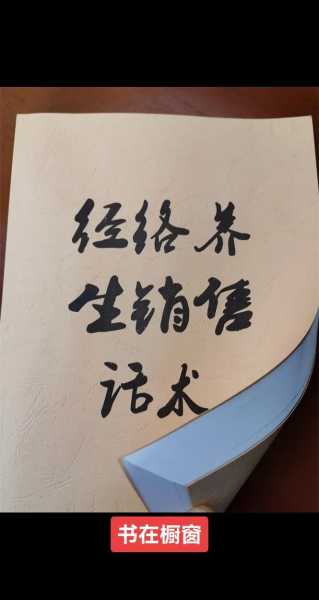 经络养
生销售
话术
书在橱窗